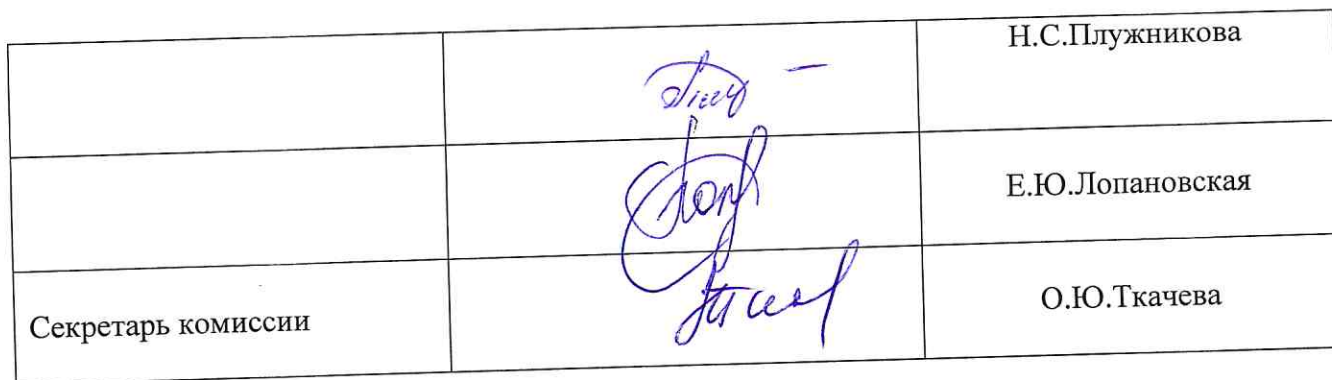 Н.С.Плужникова
Е.Ю.Лопановская
Секретарь комиссии
О.Ю.Ткачева